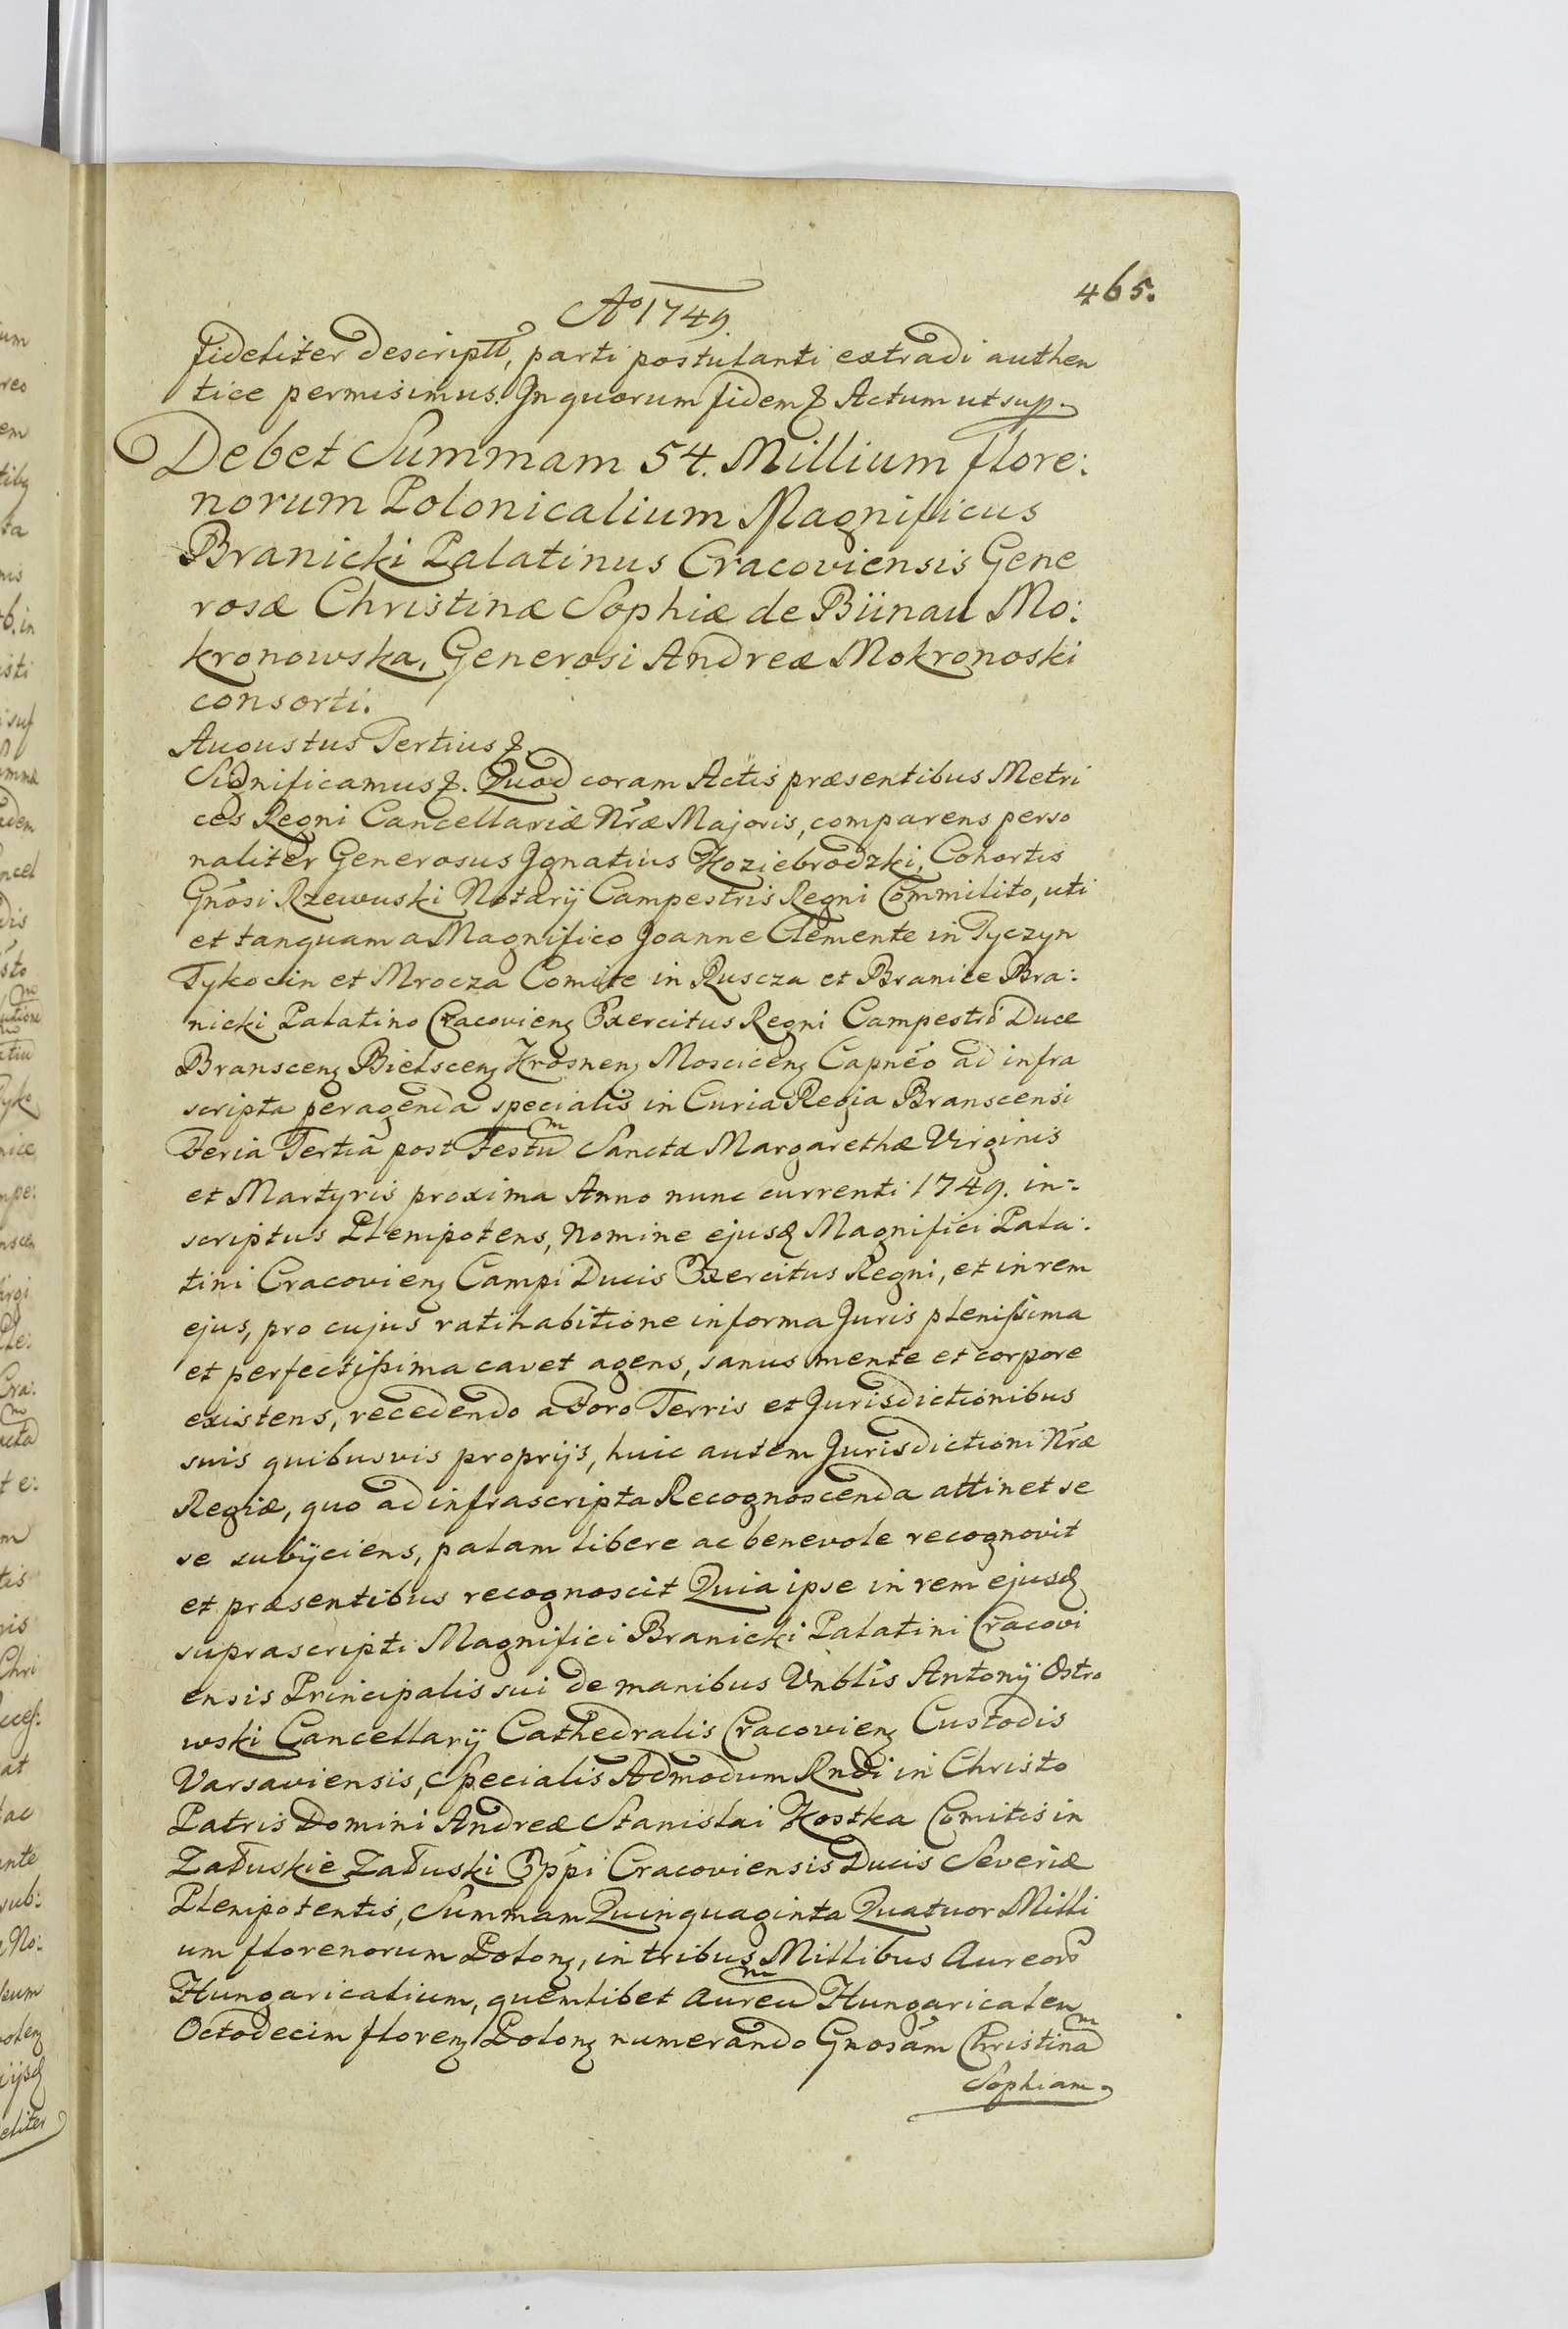 465.
Aº 1749.
fideliter descriptũ, parti postulanti extradi authen
tice permisimus. In quorum fidem &. Actum ut sup.
Debet Summam 54. Millium flore:
norum Polonicalium Magnificus
Branicki Palatinus Cracoviensis Gene
rosæ Christinæ Sophiæ de Bünau Mo:
kronowska, Generosi Andreæ Mokronoski
consorti.
Augustus Tertius &.
Significamus &. Quod coram Actis præsentibus Metri
ces Regni Cancellariæ Nr̃æ Majoris, comparens perso
naliter Generosus Ignatius Koziebrodzki, Cohortis
Gnõsi Rzewuski Notarÿ Campestris Regni Commilito, uti
et tanquam a Magnifico Joanne Clemente in Tyczyn
Tykocin et Mrocza Comite in Ruscza et Branice Bra:
nicki Palatino Cracovien̄ Exercitus Regni Campestri Duce
Branscen̄ Bielscen̄ Krosnen̄ Moscicen̄ Capnẽo ad infra
scripta peragenda specialis in Curia Regia Branscensi
Feria Tertia post Festum Sanctæ Margarethæ Virginis
et Martyris proxima Anno nunc currenti 1749. in:
scriptus Plenipotens, nomine ejusd Magnifici Pala:
tini Cracovien̄ Campi Ducis Exercitus Regni, et in rem
ejus, pro cujus ratihabitione in forma Juris plenissima
et perfectissima cavet agens, sanus mente et corpore
existens, recedendo a Foro Terris et Jurisdictionibus
suis quibusvis proprijs, huic autem Jurisdictioni Nr̃æ
Regiæ, quo ad infrascripta Recognoscenda attinet se
se subÿciens, palam libere ac benevole recognovit
et præsentibus recognoscit Quia ipse in rem ejusd
suprascripti Magnifici Branicki Palatini Cracovi
ensis Principalis sui de manibus Vnblĩs Antonÿ Ostro
wski Cancellarÿ Cathedralis Cracovien̄ Custodis
Varsaviensis, Specialis Admodum Rndĩ in Christo
Patris Domini Andreæ Stanislai Kostka Comitis in
Załuskie Załuski Epp̃i Cracoviensis Ducis Severiæ
Plenipotentis, Summam Quinquaginta Quatuor Milli
um florenorum Polon̄, in tribus Millibus Aureorũ
Hungaricalium, quemlibet Aureum Hungaricalem
Octodecim floren̄ Polon̄ numerando Gnosãm Christinam
Sophiam